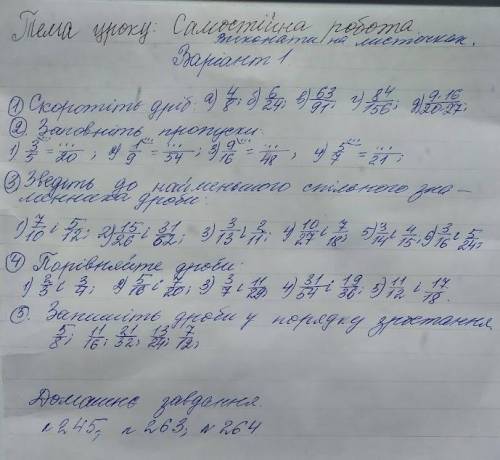 Тема уроку: Самостійна робота.
виконати на листочках.
Варіант 1
① Скоротіть дріб: а) 4/8; б) 6/24; в) 63/91; г) 84/56; д) 9·16/20·27;
② Заповніть пропуски:
1) 3/5 = .../20; 2) 1/9 = .../54; 3) 9/16 = .../48, 4) 5/7 = .../21;
③ Зведіть до найменьшого спільного зна-
менника дроби:
1) 7/10 і 5/12; 2) 15/26 і 31/62; 3) 3/13 і 2/11; 4) 10/27 і 7/18; 5) 3/14 і 4/15; 6) 3/16 і 5/24;
④ Порівняйте дроби:
1) 2/3 і 3/4; 2) 3/16 і 7/20; 3) 3/7 і 11/29; 4) 31/54 і 19/36; 5) 11/12 і 17/18.
⑤. Запишіть дроби у порядку зростання
5/8; 11/16; 21/32; 13/24; 7/12;
Домашнє завдання.
№245; №263; №264